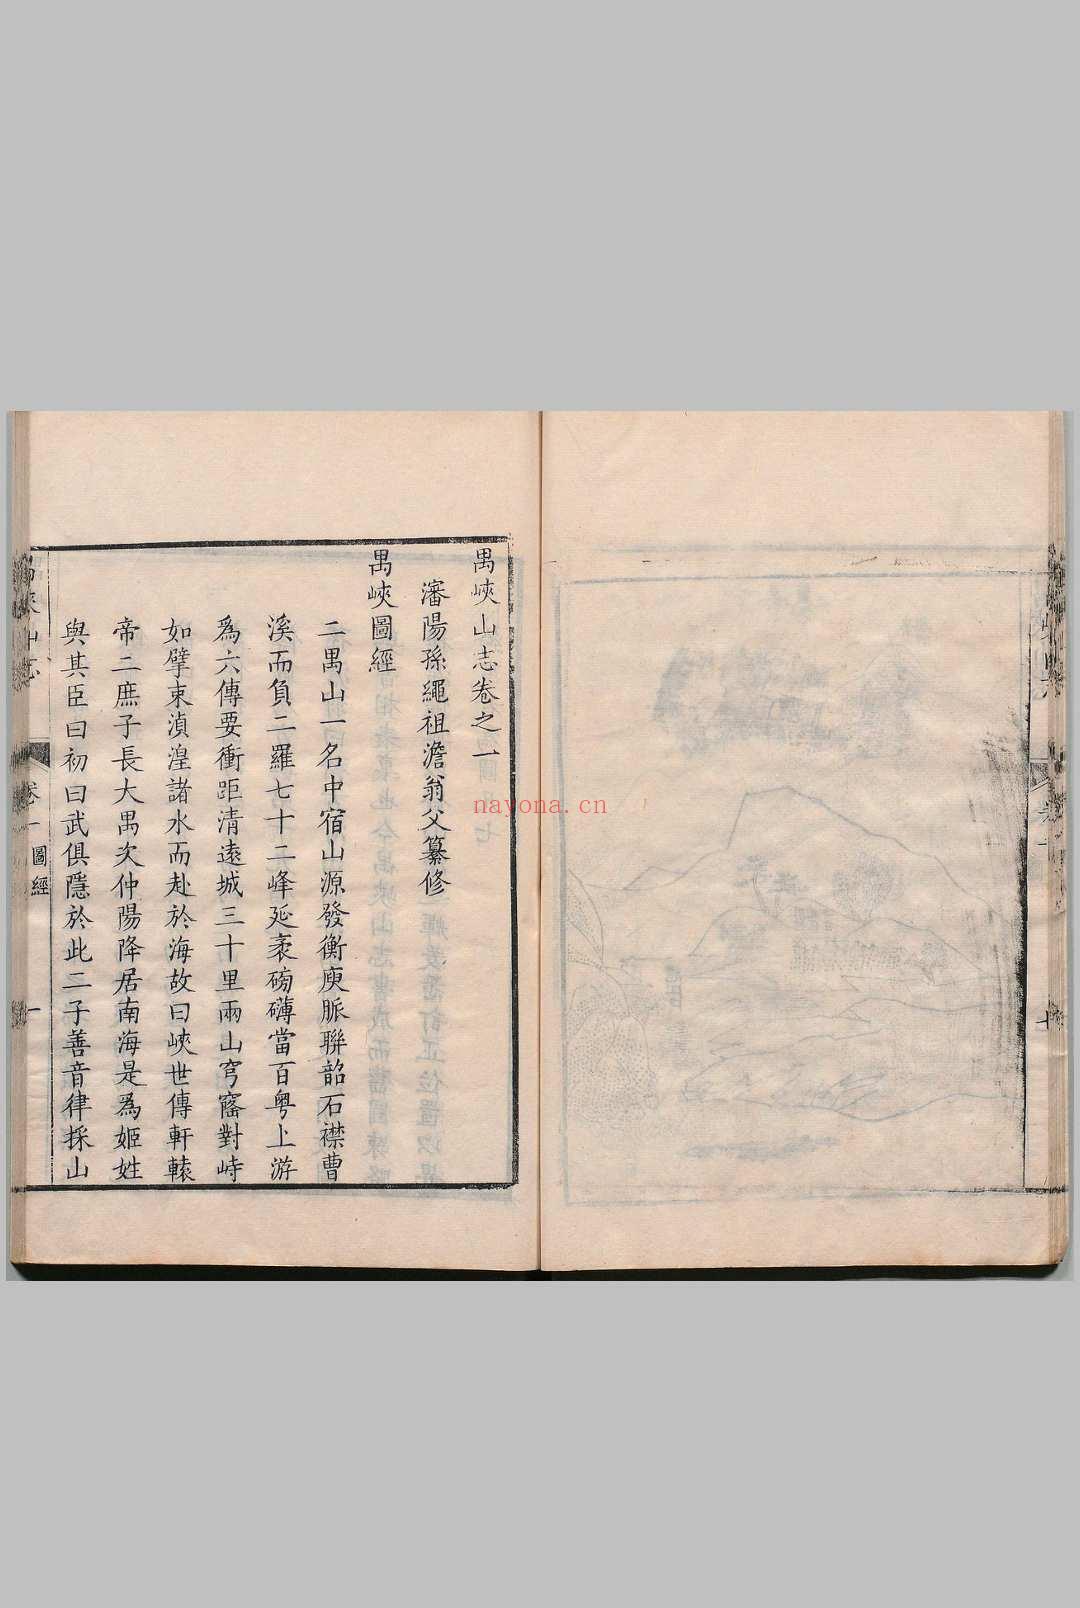 禺峽山志卷之一
瀋陽孫繩祖澹翁父纂修
禺峽圖經
二禺山一名中宿山源發衡庾脈聯韶石襟曹
溪而負二羅七十二峰延袤磅礴當百粵上游
爲六傳要衝距清遠城三十里兩山穹窿對峙
如擘束湞湟諸水而赴於海故曰峽世傳軒轅
帝二庶子長大禺次仲陽降居南海是爲姬姓
與其臣曰初曰武俱隱於此二子善音律採山
卷一
圖經
一
nayona.cn